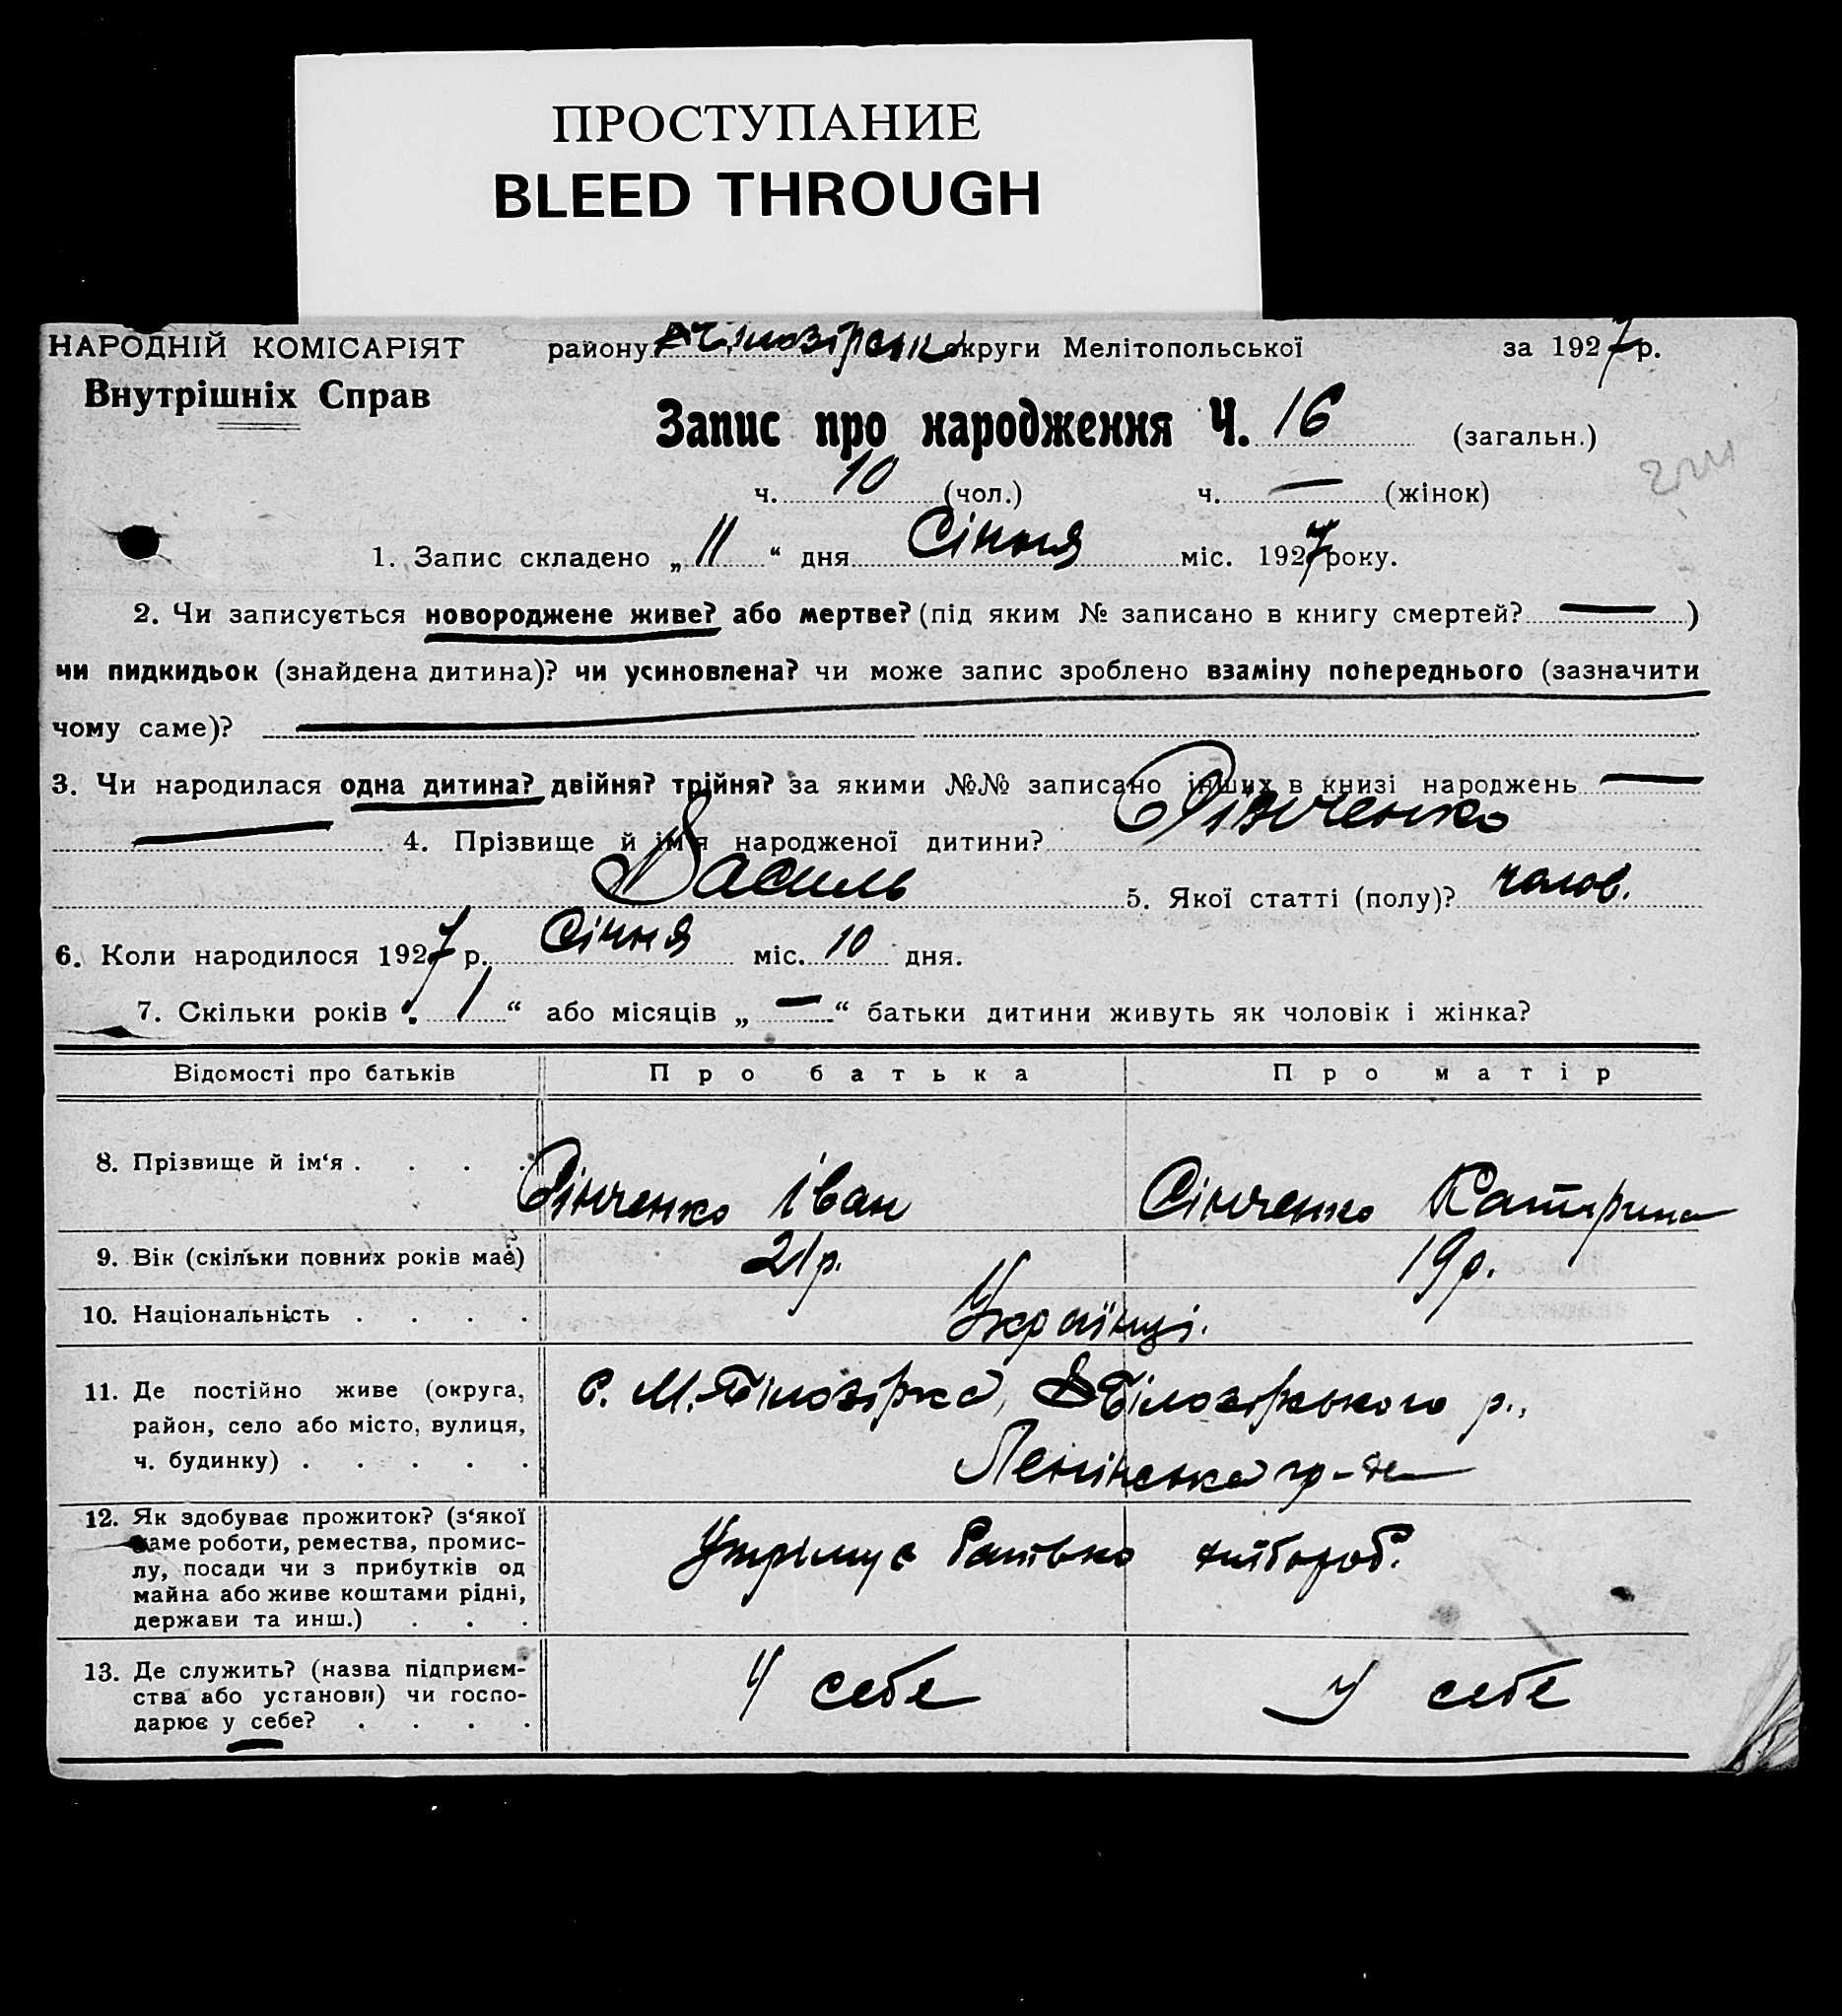 ПРОСТУПАНИЕ
BLEED THROUGH
НАРОДНІЙ КОМІСАРІЯТ району округи Мелітопольської за 1927 р.
Внутрішніх Справ
Запис про народження Ч. 16 (загальн.)
ч. 10 (чол.) ч. — (жінок)
1. Запис складено „ 11 “ дня Січня міс. 1927 року.
2. Чи записується новороджене живе? або мертве? (під яким № записано в книгу смертей? — )
чи пидкидьок (знайдена дитина)? чи усиновлена? чи може запис зроблено взаміну попереднього (зазначити
чому саме)?
3. Чи народилася одна дитина? двійня? трійня? за якими №№ записано інших в книзі народжень —
— 4. Прізвище й ім'я народженої дитини? Сінченко
Василь 5. Якої статті (полу)? чолов.
6. Коли народилося 1927 р. Січня міс. 10 дня.
7. Скільки років „ 1 “ або місяців „ — “ батьки дитини живуть як чоловік і жінка?
Відомості про батьків Про батька Про матір
8. Прізвище й ім'я . . . . Сінченко Іван Сінченко Катерина
9. Вік (скільки повних років має) 21 р. 19 р.
10. Національність . . . . Українці.
11. Де постійно живе (округа, С. М. Білозірка, Білозірського р.,
район, село або місто, вулиця,
ч. будинку) . . . . . Ленінська
12. Як здобуває прожиток? (з'якої
саме роботи, ремества, промис-
лу, посади чи з прибутків од
майна або живе коштами рідні,
держави та инш.) . . . Утримує батько хлібороб.
13. Де служить? (назва підприєм-
ства або установи) чи госпо- У себе У себе
дарює у себе? . . . .